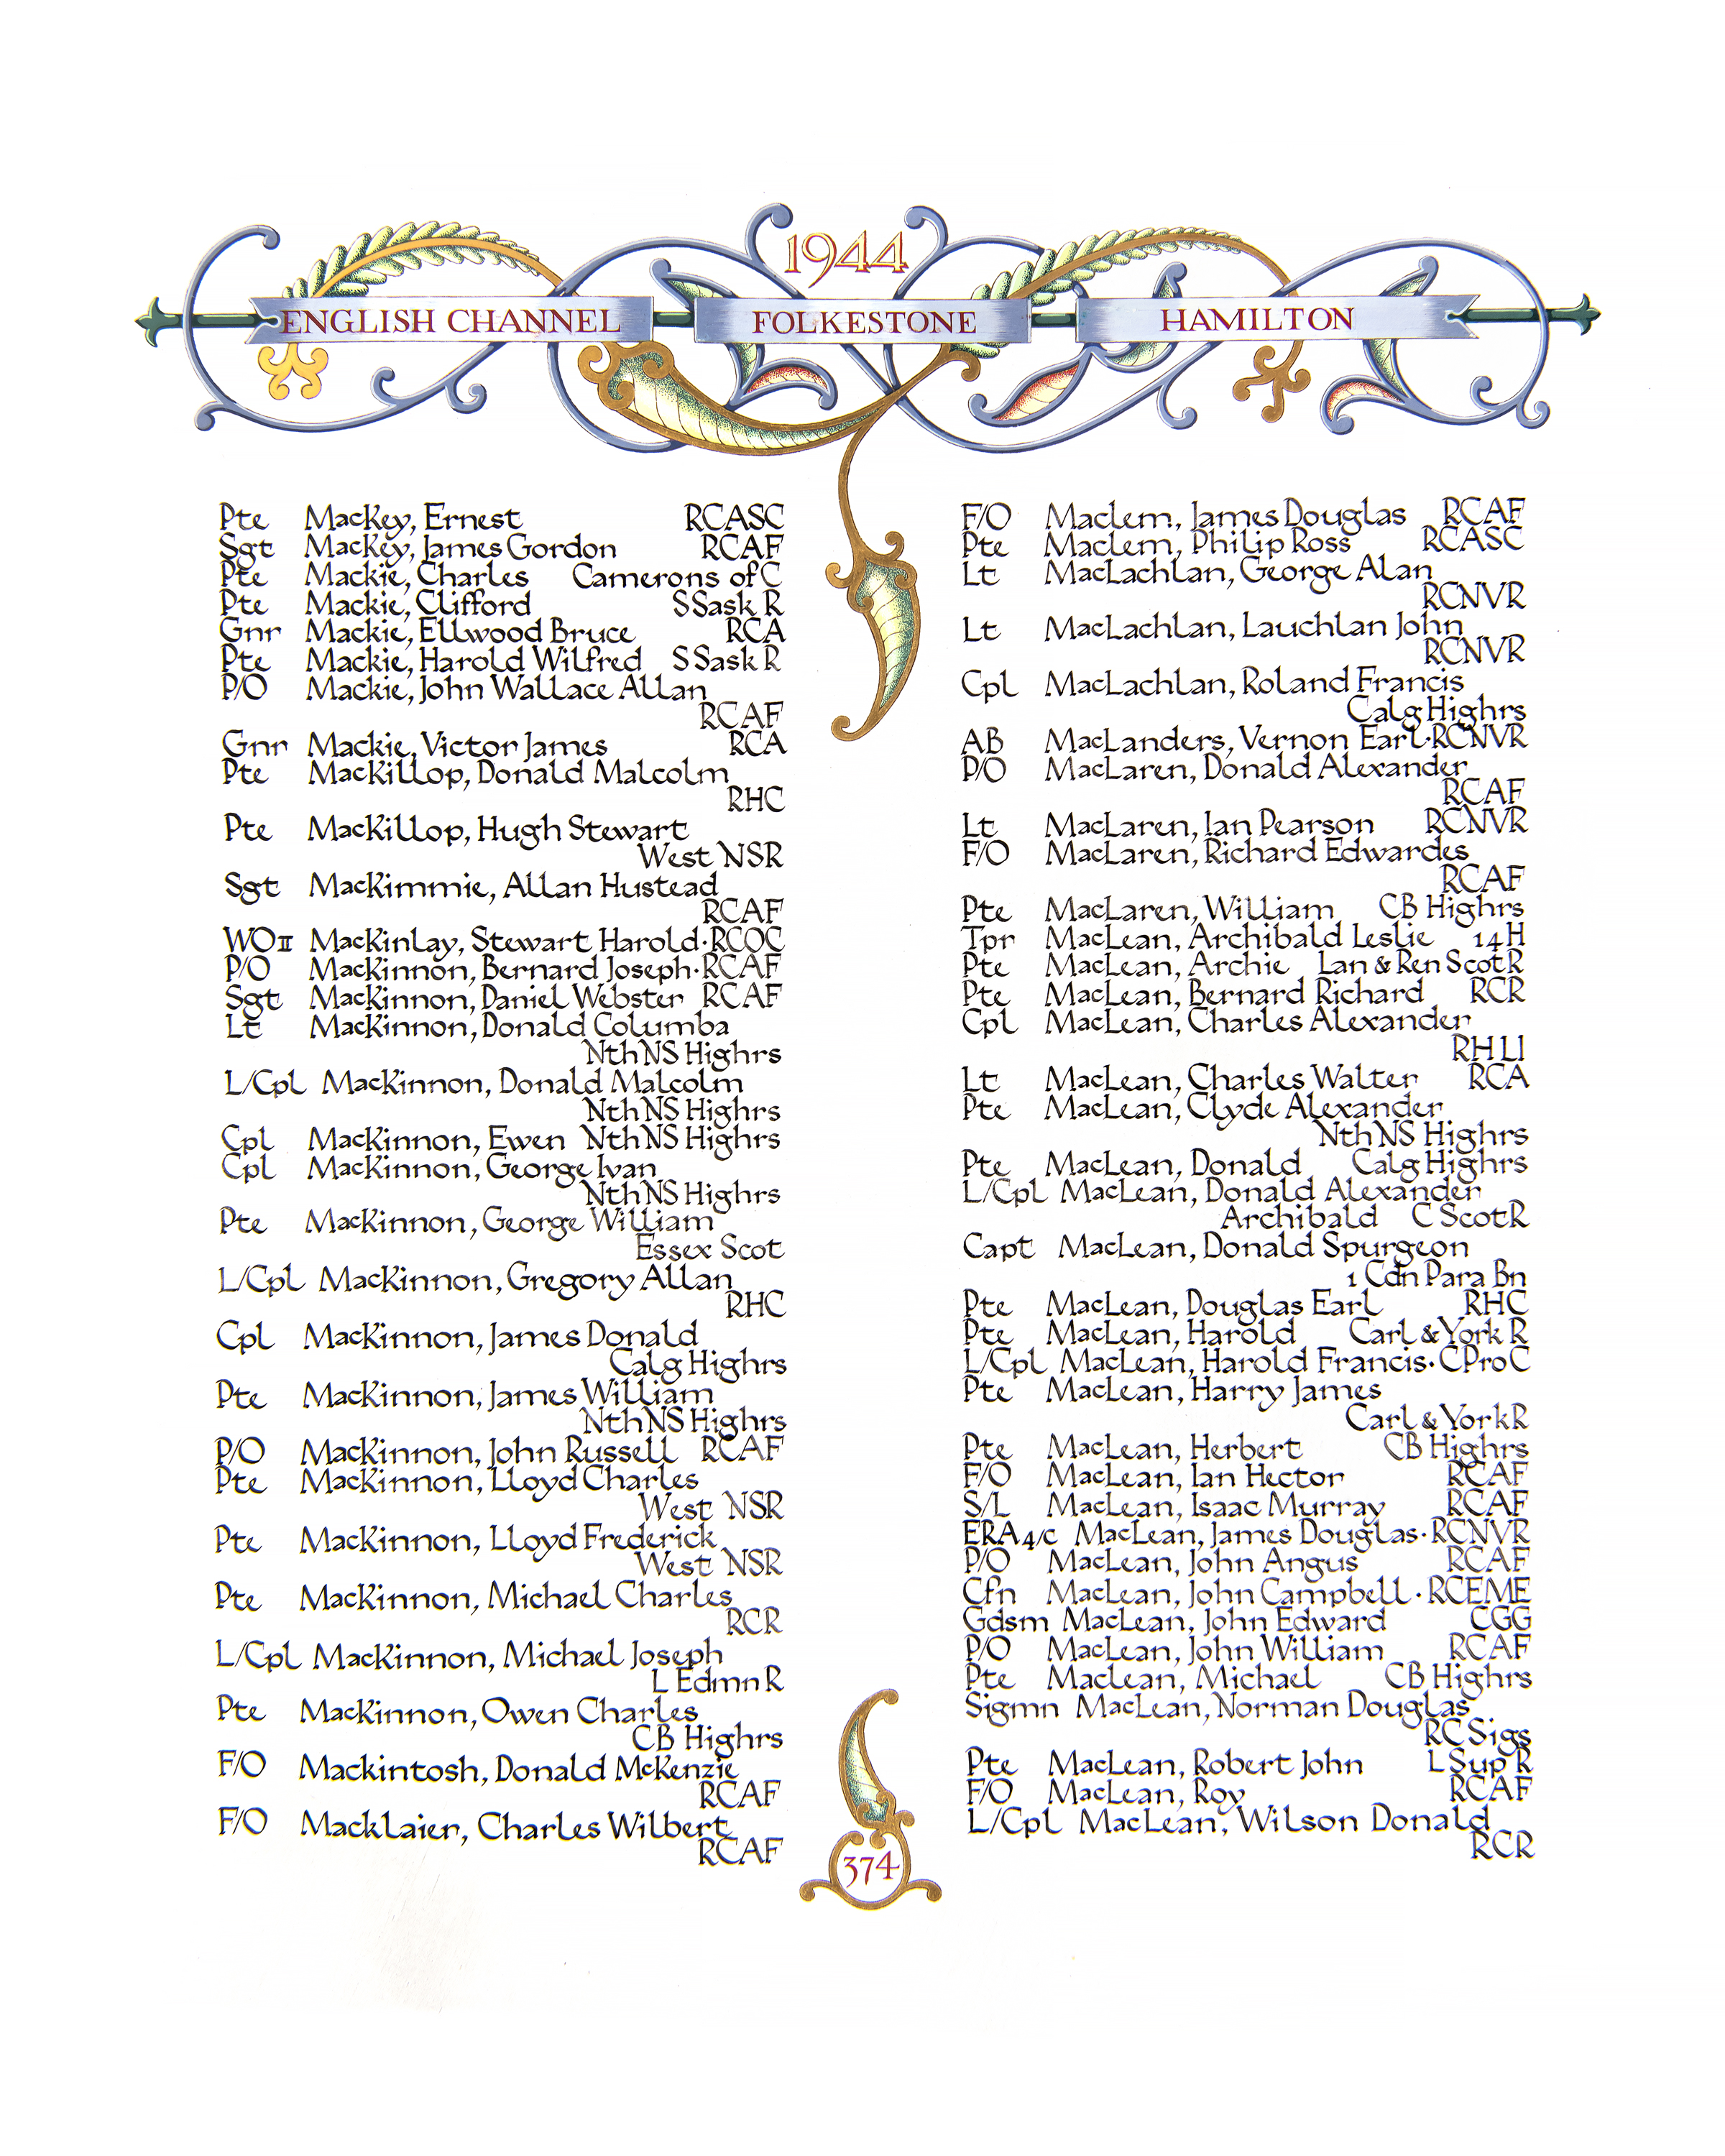 1944
ENGLISH CHANNEL FOLKESTONE HAMILTON
Pte MacKey, Ernest RCASC
Sgt MacKey, James Gordon RCAF
Pte Mackie, Charles Camerons of C
Pte Mackie, Clifford S Sask R
Gnr Mackie, Ellwood Bruce RCA
Pte Mackie, Harold Wilfred S Sask R
P/O Mackie, John Wallace Allan
RCAF
Gnr Mackie, Victor James RCA
Pte MacKillop, Donald Malcolm
RHC
Pte MacKillop, Hugh Stewart
West NSR
Sgt MacKimmie, Allan Hustead
RCAF
WO II MacKinlay, Stewart Harold·RCOC
P/O MacKinnon, Bernard Joseph·RCAF
Sgt MacKinnon, Daniel Webster RCAF
Lt MacKinnon, Donald Columba
Nth NS Highrs
L/Cpl MacKinnon, Donald Malcolm
Nth NS Highrs
Cpl MacKinnon, Ewen Nth NS Highrs
Cpl MacKinnon, George Ivan
Nth NS Highrs
Pte MacKinnon, George William
Essex Scot
L/Cpl MacKinnon, Gregory Allan
RHC
Cpl MacKinnon, James Donald
Calg Highrs
Pte MacKinnon, James William
Nth NS Highrs
P/O MacKinnon, John Russell RCAF
Pte MacKinnon, Lloyd Charles
West NSR
Pte MacKinnon, Lloyd Frederick
West NSR
Pte MacKinnon, Michael Charles
RCR
L/Cpl MacKinnon, Michael Joseph
L Edmn R
Pte MacKinnon, Owen Charles
CB Highrs
F/O Mackintosh, Donald McKenzie
RCAF
F/O Macklaier, Charles Wilbert
RCAF
F/O Maclem, James Douglas RCAF
Pte Maclem, Philip Ross RCASC
Lt MacLachlan, George Alan
RCNVR
Lt MacLachlan, Lauchlan John
RCNVR
Cpl MacLachlan, Roland Francis
Calg Highrs
AB MacLanders, Vernon Earl·RCNVR
P/O MacLaren, Donald Alexander
RCAF
Lt MacLaren, Ian Pearson RCNVR
F/O MacLaren, Richard Edwardes
RCAF
Pte MacLaren, William CB Highrs
Tpr MacLean, Archibald Leslie 14H
Pte MacLean, Archie Lan & Ren Scot R
Pte MacLean, Bernard Richard RCR
Cpl MacLean, Charles Alexander
RHLI
Lt MacLean, Charles Walter RCA
Pte MacLean, Clyde Alexander
Nth NS Highrs
Pte MacLean, Donald Calg Highrs
L/Cpl MacLean, Donald Alexander
Archibald C Scot R
Capt MacLean, Donald Spurgeon
1 Cdn Para Bn
Pte MacLean, Douglas Earl RHC
Pte MacLean, Harold Carl & York R
L/Cpl MacLean, Harold Francis·C Pro C
Pte MacLean, Harry James
Carl & York R
Pte MacLean, Herbert CB Highrs
F/O MacLean, Ian Hector RCAF
S/L MacLean, Isaac Murray RCAF
ERA 4/c MacLean, James Douglas·RCNVR
P/O MacLean, John Angus RCAF
Cfn MacLean, John Campbell·RCEME
Gdsm MacLean, John Edward CGG
P/O MacLean, John William RCAF
Pte MacLean, Michael CB Highrs
Sigmn MacLean, Norman Douglas
RC Sigs
Pte MacLean, Robert John L Sup R
F/O MacLean, Roy RCAF
L/Cpl MacLean, Wilson Donald
RCR
374